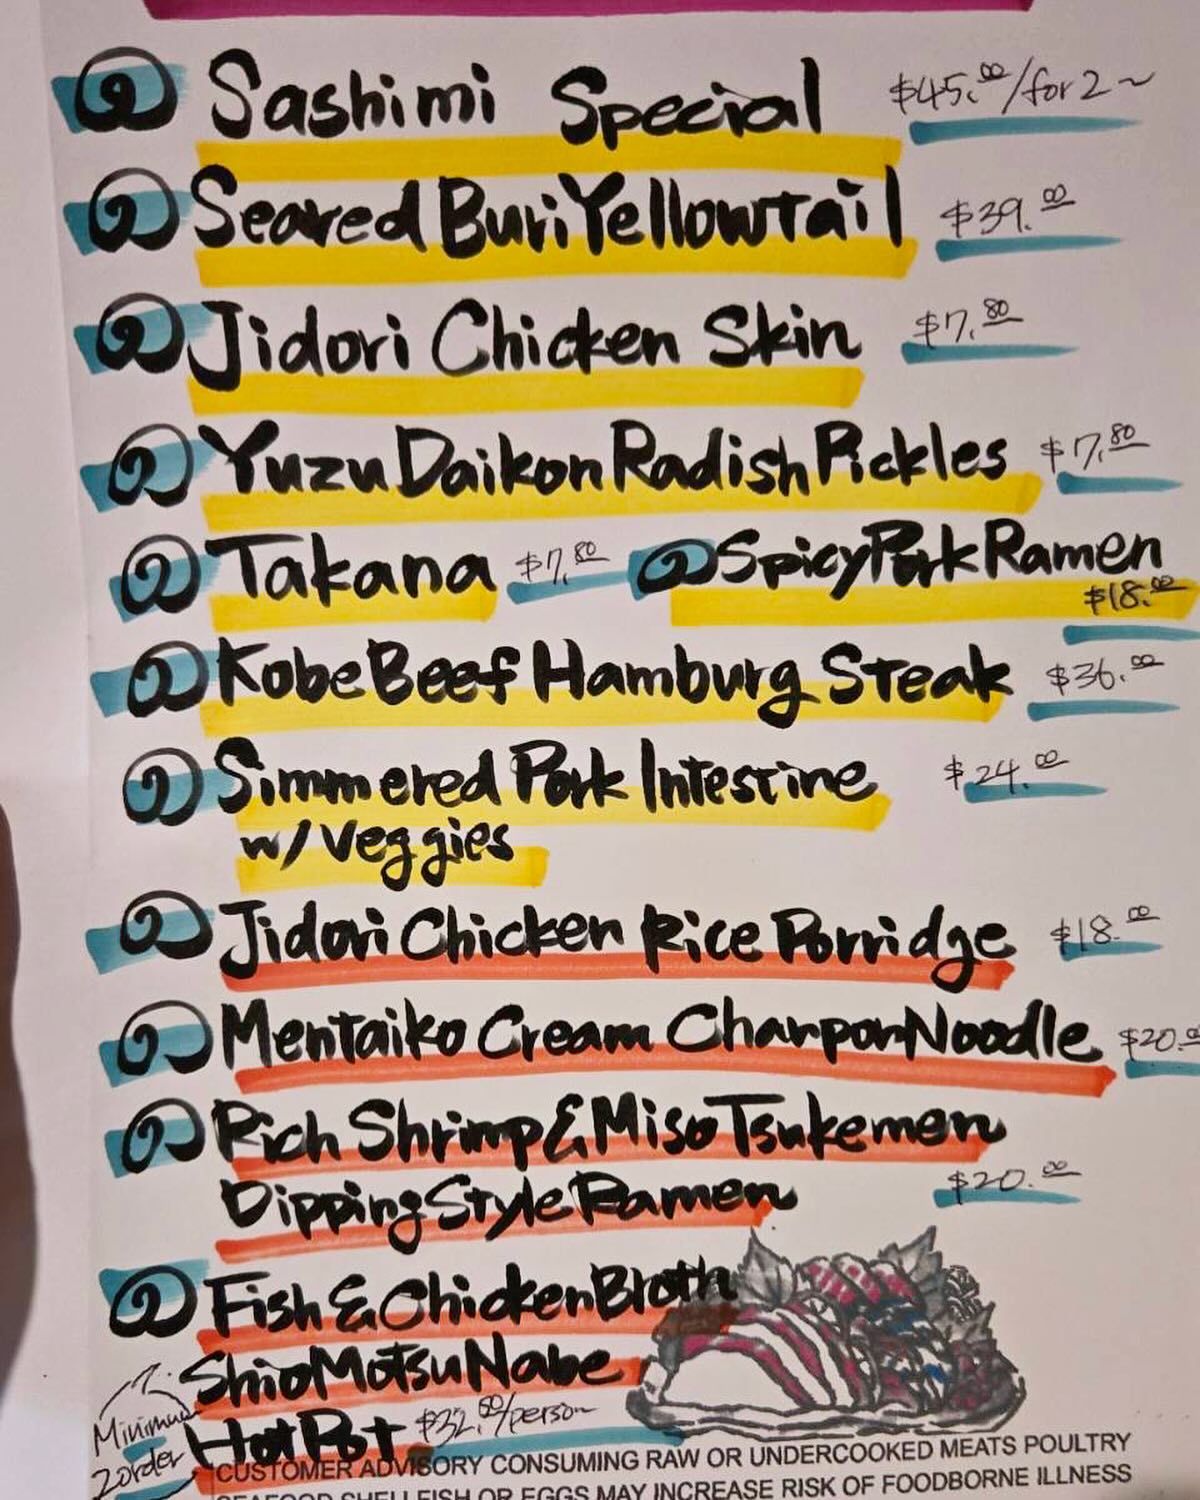 Sashimi Special $45.00/for 2~
Seared Buri Yellowtail $39.00
Jidori Chicken Skin $7.80
Yuzu Daikon Radish Pickles $7.80
Takana $7.80 Spicy Pork Ramen
$18.00
Kobe Beef Hamburg Steak $36.00
Simmered Pork Intestine $24.00
w/Veggies
Jidori Chicken Rice Porridge $18.00
Mentaiko Cream Champon Noodle $20.00
Rich Shrimp & Miso Tsukemen
Dipping Style Ramen $20.00
Fish & Chicken Broth
Shio Motsu Nabe
Hot Pot $32.50/person
Minimum
2 order
CUSTOMER ADVISORY CONSUMING RAW OR UNDERCOOKED MEATS POULTRY
SEAFOOD SHELLFISH OR EGGS MAY INCREASE RISK OF FOODBORNE ILLNESS